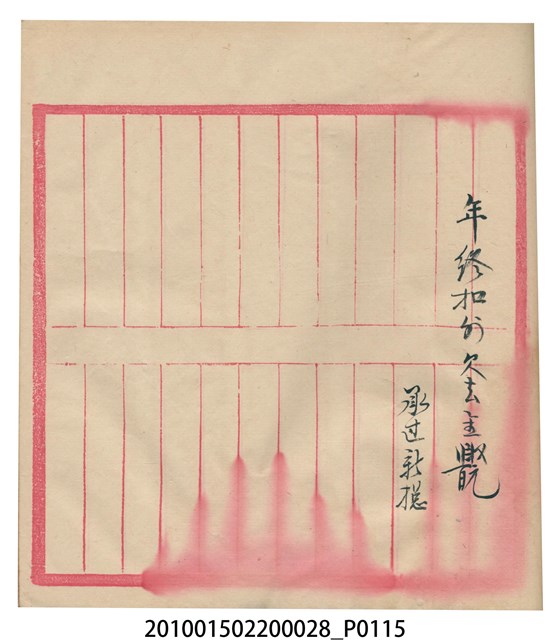 年終扣外欠去主
承过新摠
201001502200028_P0115